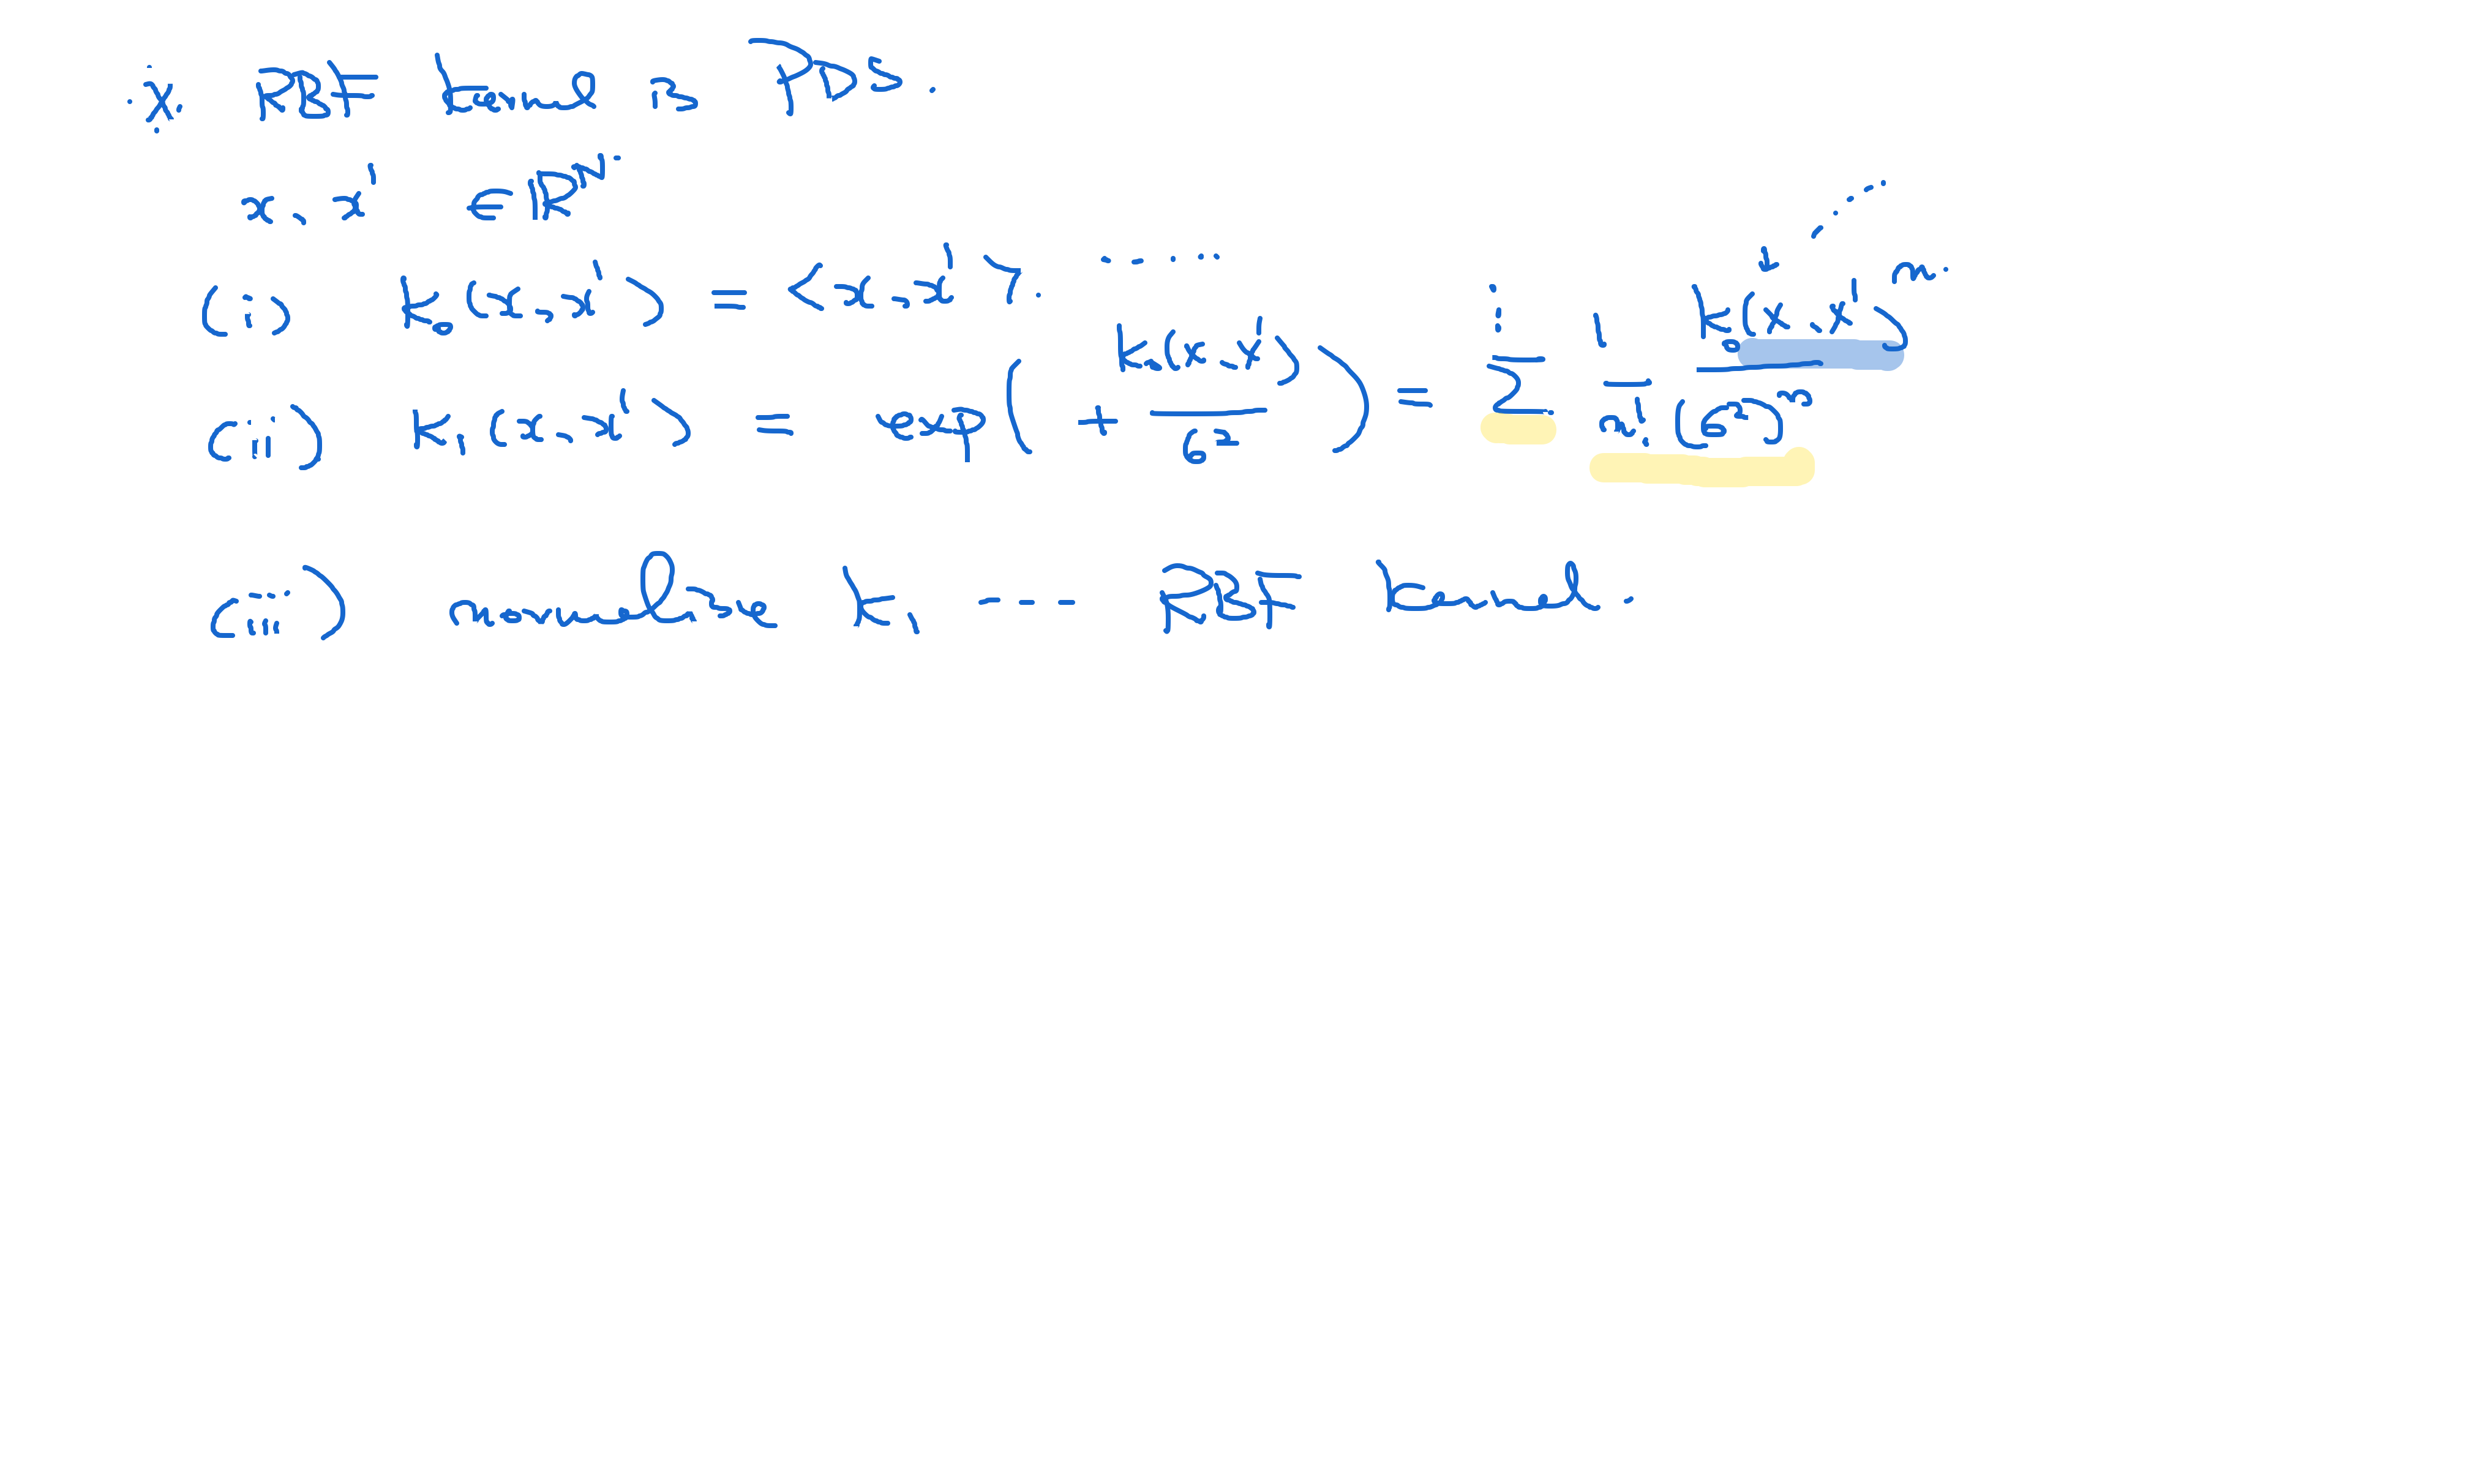 * RBF kernel is PDS.
x, x' ∈ ℝᴺ.
(i) k₀(x, x') = <x, x'>. .....
(ii) K₁(x, x') = exp( + k₀(x, x') / σ² ) = Σ 1/n! k₀(x, x')ⁿ / (σ²)ⁿ
(iii) normalize k₁ --- RBF kernel.